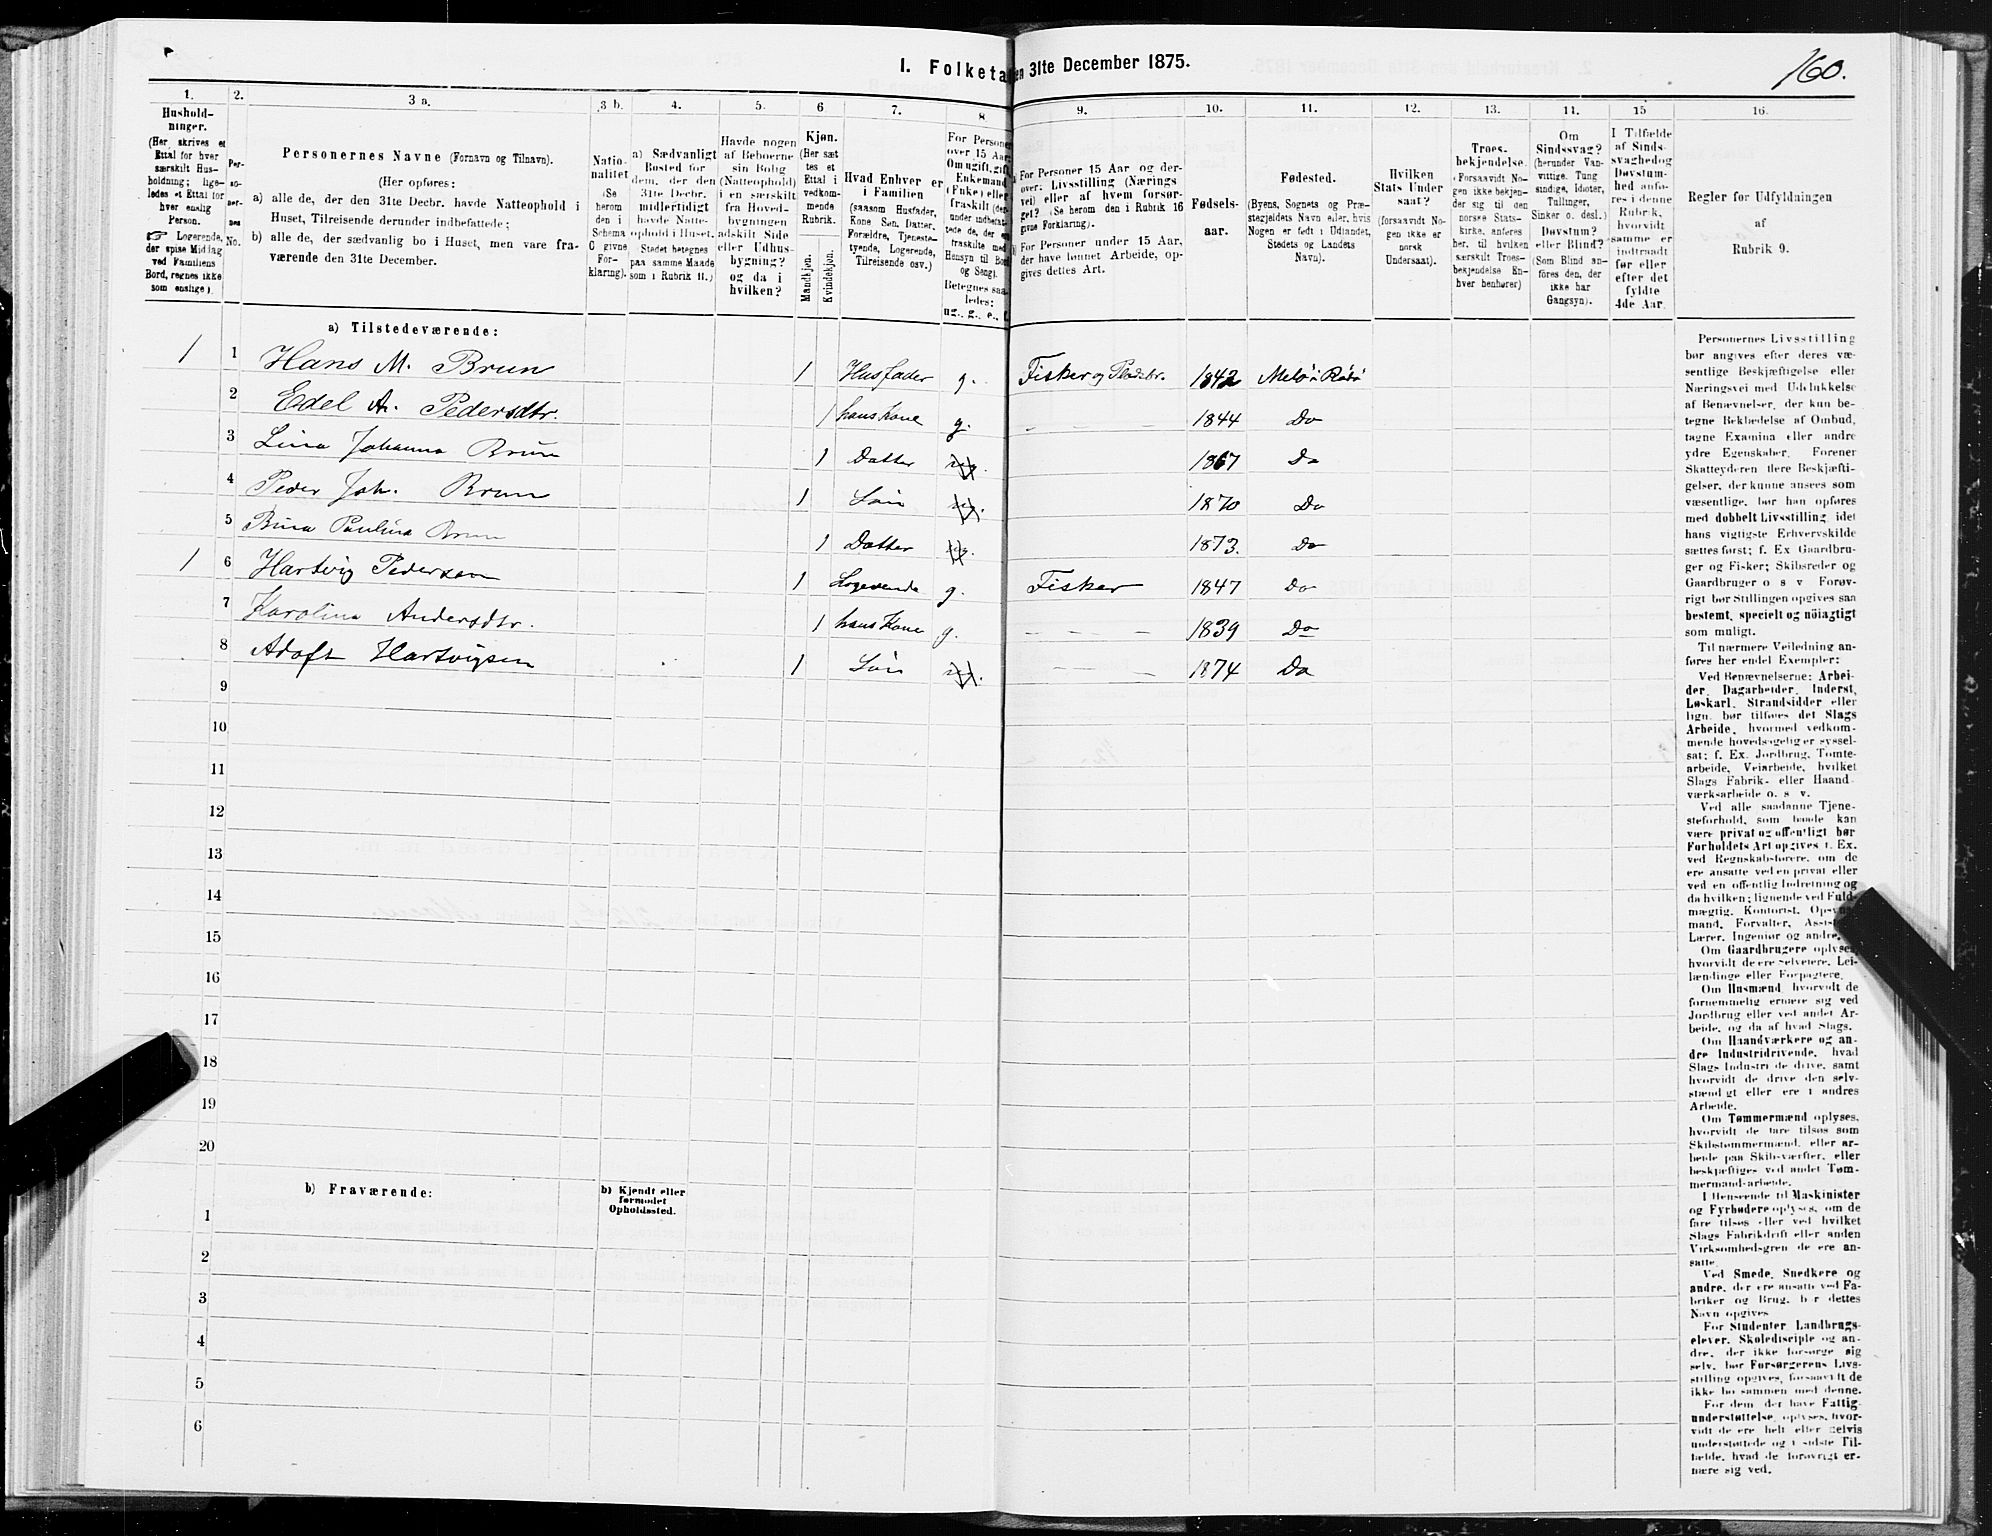 160.
I. Folketa en 31te December 1875.
1. 2. 3 a. 3 b. 4. 5. 6 7. 8 9. 10. 11. 12. 13. 14. 15 16.
Hushold-
ninger.
(Her skrives et
Ettal for hver
særskilt Hus-
holdning; lige-
ledes et Ettal for
hver enslig
Person.
Logerende,
der spise Middag
ved Familiens
Bord, regnes ikke
som enslige).
Per-
so-
ner-
nes
No.
Personernes Navne (Fornavn og Tilnavn).
(Her opføres:
a) alle de, der den 31te Decbr. havde Natteophold i
Huset, Tilreisende derunder indbefattede;
b) alle de, der sædvanlig bo i Huset, men vare fra-
værende den 31te December.
Natio-
nalitet
(Se
herom
den i
Schema
C givne
For-
klaring).
a) Sædvanligt
Bosted for
dem, der den
31te Decbr.
midlertidigt
havde Natte-
ophold i Huset.
(Stedet betegnes
paa samme Maade
som i Rubrik 11.)
Havde nogen
af Beboerne
sin Bolig
(Natteophold)
i en særskilt
fra Hoved-
bygningen
adskilt Side
eller Udhus-
bygning?
og da i
hvilken?
Kjøn.
(Her sæt
tes et
Ettal i
vedkom-
mende
Rubrik.
Mandkjøn.
Kvindekjøn.
Hvad Enhver er
i Familien
(saasom Husfader,
Kone, Søn, Datter,
Forældre, Tjeneste-
tyende, Logerende,
Tilreisende osv.)
For Personer
over 15 Aar:
Om ugift, gift,
Enkemand
(Enke) eller
fraskilt (der-
under indbefat-
tede de, der ere
fraskilte med
Hensyn til Bord
og Seng).
Betegnes saa-
ledes:
ug., g., e., f.
For Personer 15 Aar og der-
over: Livsstilling (Nærings
vei) eller af hvem forsør-
get? (Se herom den i Rubrik 16
givne Forklaring).
For Personer under 15 Aar,
der have lønnet Arbeide, op-
gives dettes Art.
Fødsels-
aar.
Fødested.
(Byens, Sognets og Præ-
stegjældets Navn eller, hvis
Nogen er født i Udlandet,
Stedets og Landets
Navn).
Hvilken
Stats Under
saat?
(forsaavidt No-
gen ikke er
norsk
Undersaat).
Troes-
bekjendelse.
(Forsaavidt No-
gen ikke bekjen-
der sig til den
norske Stats-
kirke, anføres
her, til hvilken
særskilt Troes-
bekjendelse En-
hver henhører)
Om
Sindssvag?
(herunder Van-
vittige, Tung
sindige, Idioter,
Tullinger,
Sinker o. desl.)
Døvstum?
eller Blind?
(Som Blind an-
føres den, der
ikke har
Gangsyn).
I Tilfælde
af Sinds-
svaghed og
Døvstum-
hed anfø-
res i denne
Rubrik,
hvorvidt
samme er
indtraadt
før eller
efter det
fyldte
4de Aar.
Regler for Udfyldningen
af
Rubrik 9.
a) Tilstedeværende:
1 1 Hans M. Brun 1 Husfader g. Fisker og Pladsbr. 1842 Melø i Rødø
2 Edel A. Pedersdtr. 1 hans Kone g. 1844 Do
3 Lina Johanna Brun 1 Datter ug. 1867 Do
4 Peder Joh. Brun 1 Søn ug. 1870 Do
5 Bina Paulina Brun 1 Datter ug. 1873. Do
1 6 Hartvig Pedersen 1 Logerende g. Fisker 1847 Do
7 Karolina Andersdtr. 1 hans Kone g. 1839 Do
8 Adolf Hartvigsen 1 Søn ug. 1874 Do
9
10
11
12
13
14
15
16
17
18
19
20
b) Fraværende:
b) Kjendt eller
formodet
Opholdssted.
1
2
3
4
5
6
Personernes Livsstilling
bør angives efter deres væ-
sentlige Beskjæftigelse eller
Næringsvei med Udelukkelse
af Benævnelser, der kun be-
tegne Beklædelse af Ombud,
tagne Examina eller andre
ydre Egenskaber. Forener
Skatteyderen flere Beskjæfti-
gelser, der kunne ansees som
væsentlige, bør han opføres
med dobbelt Livsstilling, idet
hans vigtigste Erhvervskilde
sættes først; f. Ex Gaardbru-
ger og Fisker; Skibsreder og
Gaardbruger o s v Forøv-
rigt bør Stillingen opgives saa
bestemt, specielt og nöiagtigt
som muligt.
Til nærmere Veiledning an-
føres her endel Exempler:
Ved Benævnelserne: Arbei-
der, Dagarbeider, Inderst,
Løskarl, Strandsidder eller
lign. bør tilføies det Slags
Arbeide, hvormed vedkom-
mende hovedsagelig er syssel-
sat; f. Ex. Jordbrug, Tomte-
arbeide, Veiarbeide, hvilket
Slags Fabrik- eller Haand-
værksarbeide o. s v.
Ved alle saadanne Tjene-
steforhold, som baade kan
være privat og offentligt bør
Forholdets Art opgives f. Ex.
ved Regnskabsførere, om de
ere ansatte ved en privat eller
ved en offentlig Indretning og
da hvilken; lignende ved Fuld-
mægtig, Kontorist, Opsyns-
mand, Forvalter, Assist
Lærer, Ingeniør og andre.
Om Gaardbrugere oplyses,
hvorvidt de ere Selveiere, Lei-
lændinge eller Forpagtere.
Om Husmænd hvorvidt de
fornemmelig ernære sig ved
Jordbrug eller ved andet Ar-
beide, og da af hvad Slags.
Om Haandværkere og an-
dre Industridrivende, hvad
Slags Industri de drive, samt
hvorvidt de drive den selv-
stændigt eller ere i andres
Arbeide.
Om Tømmermænd oplyses,
hvorvidt de fare tilsøs som
Skibstømmermænd, eller ar-
beide paa Skibsværfter, eller
beskjæftiges ved andet Tøm-
mermandsarbeide.
I Henseende til Maskinister
og Fyrbødere oplyses, om de
fare tilsøs eller ved hvilket
Slags Fabrikdrift eller anden
Virksomhedsgren de ere an-
satte.
Ved Smede, Snedkere og
andre, der ere ansatte ved Fa-
briker og Brug, bør dettes
Navn opgives
For Studenter, Landbrugs-
elever, Skoledisciple og an-
dre, der ikke forsørge sig
selv, bør Forsørgerens Livs-
stilling opgives, forsaavidt de
ikke bo sammen med denne.
For dem, der have Fattig-
understøttelse, oplyses, hvor-
vidt de ere helt eller delvis
understøttede og i sidste Til-
fælde, hvad de forøvrigt er-
nære sig ved.